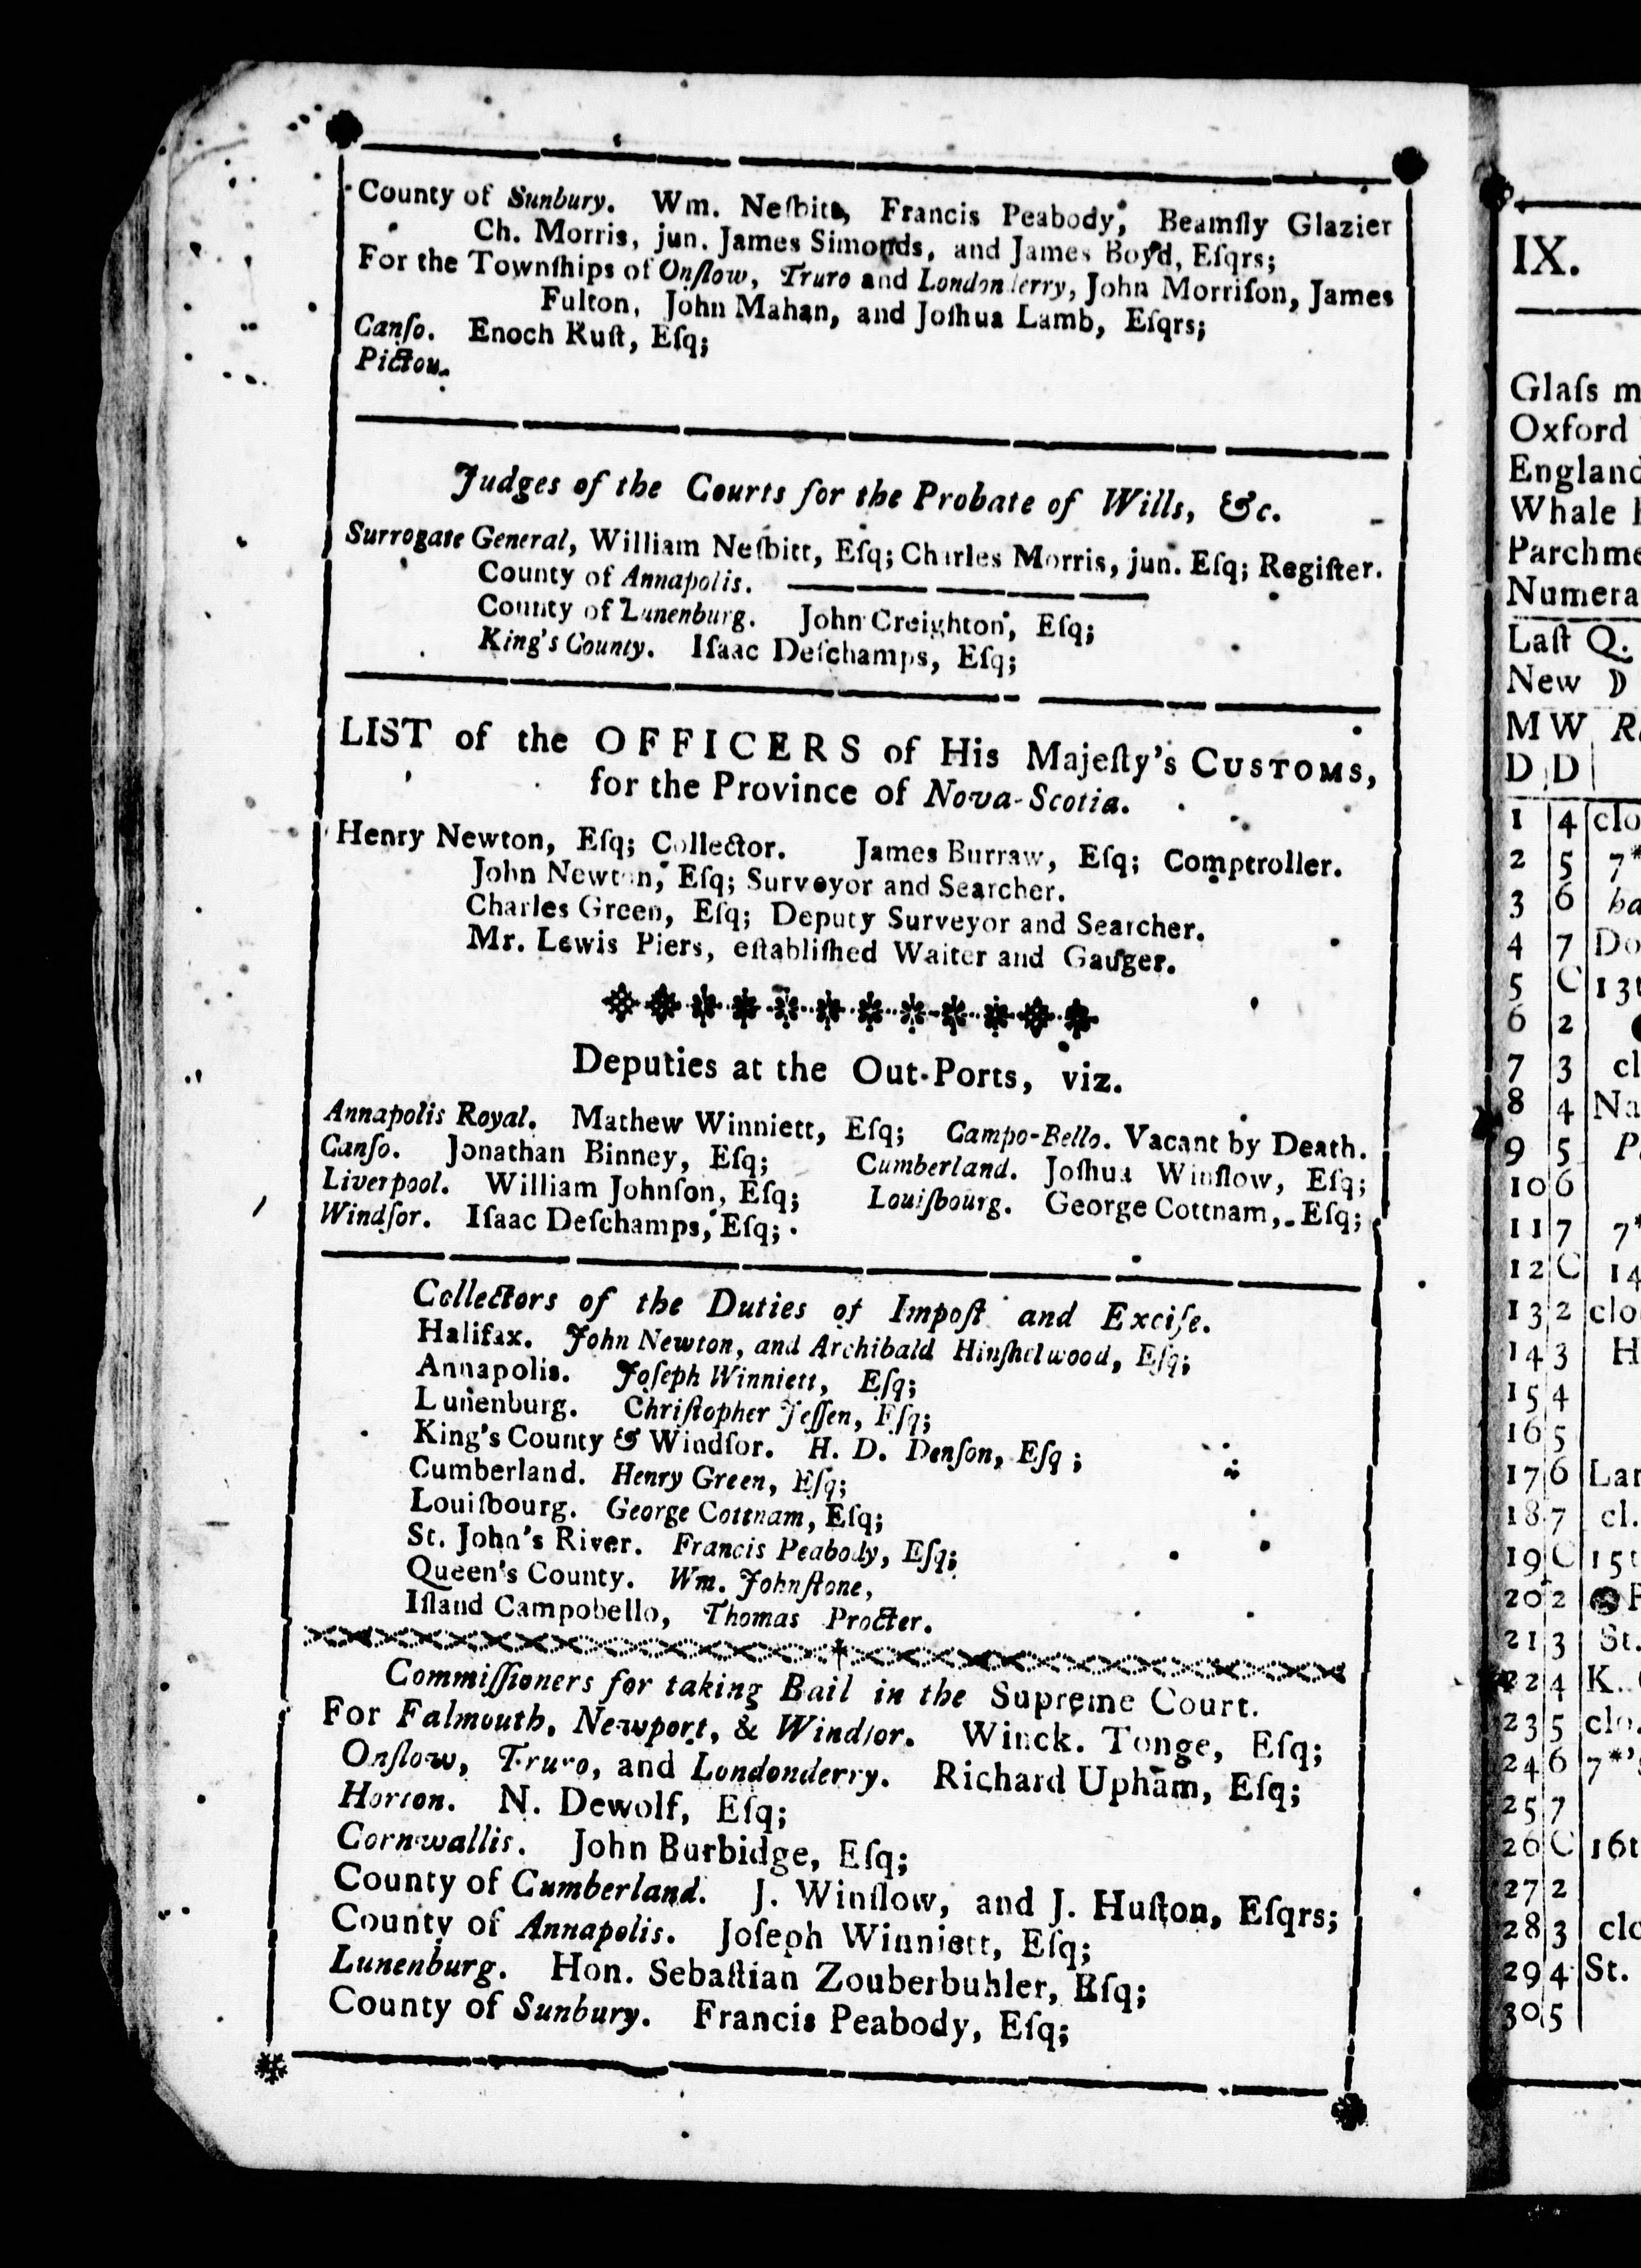 County of Sunbury. Wm. Neſbitt, Francis Peabody, Beamſly Glazier
Ch. Morris, jun. James Simonds, and James Boyd, Eſqrs;
For the Townſhips of Onſlow, Truro and Londonderry, John Morriſon, James
Fulton, John Mahan, and Joſhua Lamb, Eſqrs;
Canſo. Enoch Ruſt, Eſq;
Pictou.
Judges of the Courts for the Probate of Wills, &c.
Surrogate General, William Neſbitt, Eſq; Charles Morris, jun. Eſq; Regiſter.
County of Annapolis.
County of Lunenburg. John Creighton, Eſq;
King's County. Iſaac Deſchamps, Eſq;
LIST of the OFFICERS of His Majeſty's CUSTOMS,
for the Province of Nova-Scotia.
Henry Newton, Eſq; Collector. James Burraw, Eſq; Comptroller.
John Newton, Eſq; Surveyor and Searcher.
Charles Green, Eſq; Deputy Surveyor and Searcher.
Mr. Lewis Piers, eſtabliſhed Waiter and Gauger.
Deputies at the Out-Ports, viz.
Annapolis Royal. Mathew Winniett, Eſq; Campo-Bello. Vacant by Death.
Canſo. Jonathan Binney, Eſq; Cumberland. Joſhua Winſlow, Eſq;
Liverpool. William Johnſon, Eſq; Louiſbourg. George Cottnam, Eſq;
Windſor. Iſaac Deſchamps, Eſq;
Collectors of the Duties of Impoſt and Exciſe.
Halifax. John Newton, and Archibald Hinſhelwood, Eſq;
Annapolis. Joſeph Winniett, Eſq;
Lunenburg. Chriſtopher Jeſſen, Eſq;
King's County & Windſor. H. D. Denſon, Eſq;
Cumberland. Henry Green, Eſq;
Louiſbourg. George Cottnam, Eſq;
St. John's River. Francis Peabody, Eſq;
Queen's County. Wm. Johnſtone,
Iſland Campobello, Thomas Procter.
Commiſſioners for taking Bail in the Supreme Court.
For Falmouth, Newport, & Windſor. Winck. Tonge, Eſq;
Onſlow, Truro, and Londonderry. Richard Upham, Eſq;
Horton. N. Dewolf, Eſq;
Cornwallis. John Burbidge, Eſq;
County of Cumberland. J. Winſlow, and J. Huſton, Eſqrs;
County of Annapolis. Joſeph Winniett, Eſq;
Lunenburg. Hon. Sebaſtian Zouberbuhler, Eſq;
County of Sunbury. Francis Peabody, Eſq;
IX.
Glaſs m
Oxford
England
Whale
Parchme
Numera
Laſt Q.
New ☽
M W R
D D
1 4 clo
2 5 7*
3 6 ba
4 7 Do
5 C 13t
6 2
7 3 cl
8 4 Na
9 5 P
10 6
11 7 7*
12 C 14
13 2 clo
14 3 H
15 4
16 5
17 6 Lar
18 7 cl.
19 C 15t
20 2
21 3 St.
22 4 K.
23 5 clo.
24 6 7*'s
25 7
26 C 16t
27 2
28 3 clo
29 4 St.
30 5